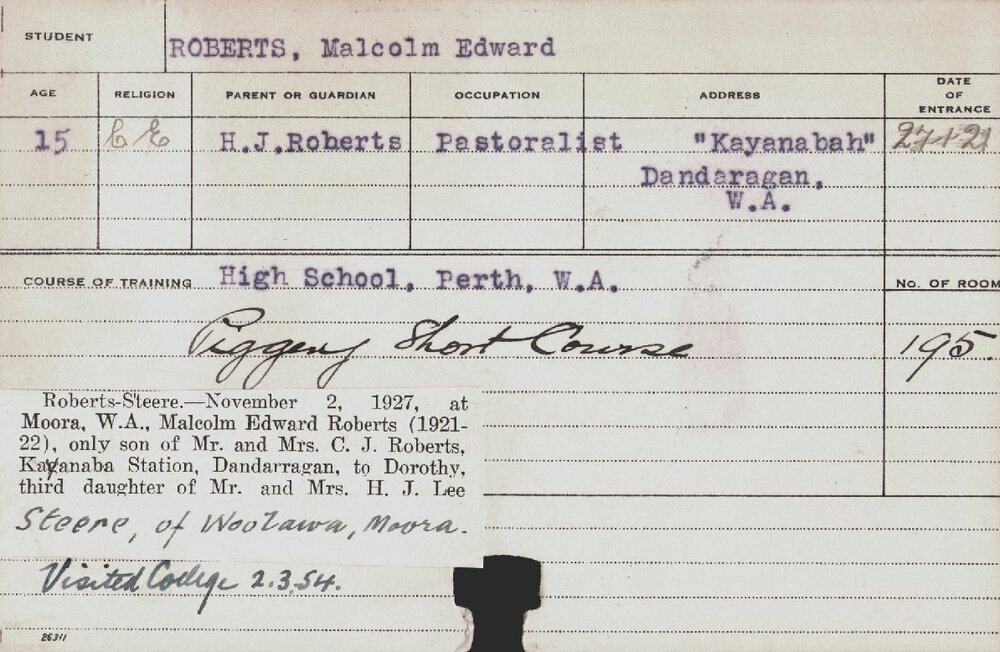 STUDENT ROBERTS, Malcolm Edward
AGE RELIGION PARENT OR GUARDIAN OCCUPATION ADDRESS DATE OF ENTRANCE
15 C E H.J.Roberts Pastoralist "Kayanabah" 27.1.21
Dandaragan,
W.A.
COURSE OF TRAINING High School, Perth, W.A. NO. OF ROOM
Piggery Short Course 195.
Roberts-Steere.—November 2, 1927, at
Moora, W.A., Malcolm Edward Roberts (1921-
22), only son of Mr. and Mrs. C. J. Roberts,
Kayanaba Station, Dandarragan, to Dorothy,
third daughter of Mr. and Mrs. H. J. Lee
Steere, of Woolawa, Moora.
Visited College 2.3.54.
26311